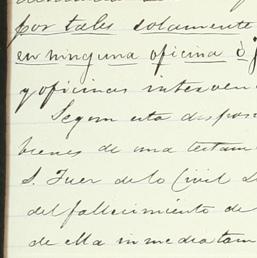 por tales solamente
en ninguna oficina ó
y oficinas interven
Segun esta dispos
bienes de una testam
S. Juez de lo Civil
del fallecimiento de
de ella inmediatam